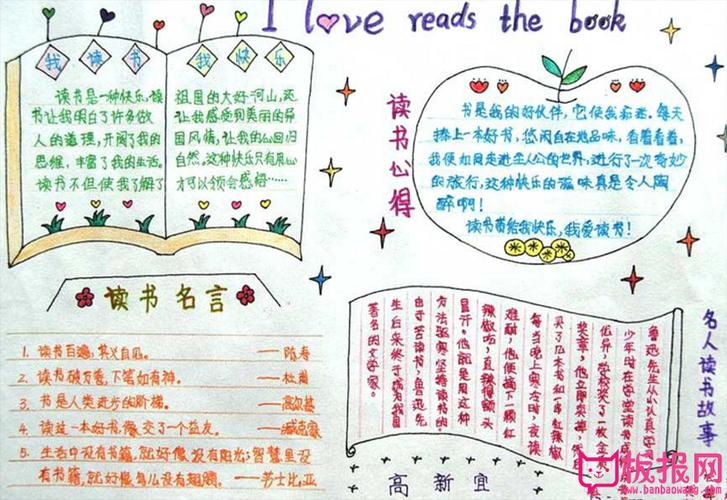 I love reads the book
我 读 书 我 快 乐
读书是一种快乐,读
书让我明白了许多做
人的道理,开阔了我的
思维,丰富了我的生活。
读书不但使我了解了
祖国的大好河山,还
让我感受到美丽的异
国风情,让我的心回归
自然。这种快乐只有用心
才可以领会感悟……
读书心得
书是我的好伙伴,它使我痴迷。每天
捧上一本好书,悠闲自在地品味,看着看着,
我便如同走进主人公的世界,进行了一次奇妙
的旅行,这种快乐的滋味真是令人陶
醉啊!
读书带给我快乐,我爱读书!
读书名言
1. 读书百遍,其义自见。 ——陈寿
2. 读书破万卷,下笔如有神。 ——杜甫
3. 书是人类进步的阶梯。 ——高尔基
4. 读过一本好书,像交了一个益友。 ——臧克家
5. 生活中没有书籍,就好像没有阳光;智慧里没
有书籍,就好像鸟儿没有翅膀。 ——莎士比亚
名人读书故事
鲁迅先生从小认真学习
少年时在学堂读书
优异,学校奖了一枚金
奖章,他立即卖掉,
买了几本书和一串红辣椒
每当晚上寒冷时,夜读
难耐,他便摘下一颗红
辣椒吃,直辣得额头
冒汗。他就是用这种
方法驱寒坚持读书的。
由于苦读书,鲁迅先
生后来终于成为我国
著名的文学家。
高新宜
板报网
www.banbaowang.com